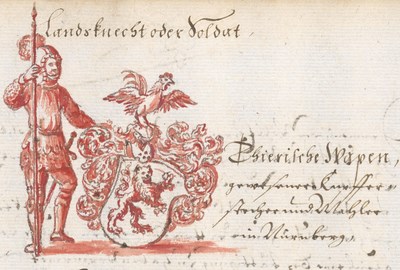 Landsknecht oder Soldat,
Thierische Wapen,
gewesener Kupffer
stecher und Mahler
in Nürnberg.